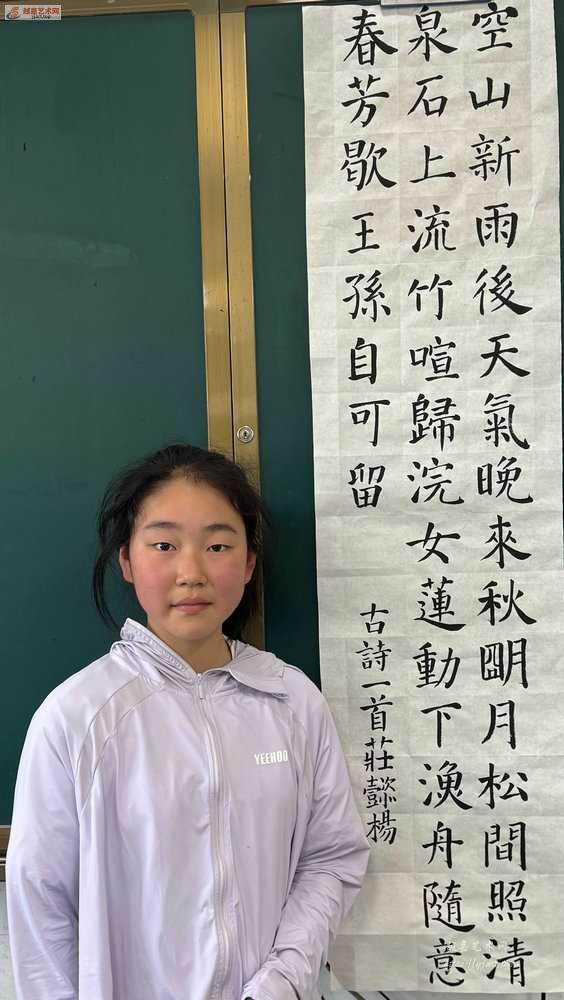 空山新雨後天氣晚來秋朙月松間照清
泉石上流竹喧歸浣女蓮動下漁舟隨意
春芳歇王孫自可留
古詩一首莊懿楊
YEEHOO